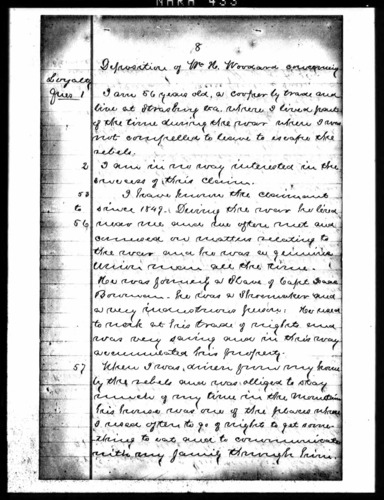 NARA 433
8
Deposition of Wm H. Woodard concerning
Loyalty
Ques 1 I am 56 years old, a cooper by trade and
live at Strasburg Va. where I lived part
of the time during the war when I was
not compelled to leave to escape the
rebels.
2 I am in no way interested in the
success of this claim.
53 I have known the claimant
to since 1849. During the war he lived
56 near me and we often met and
conversed on matters relating to
the war and he was a genuine
Union man all the time.
He was formerly a Slave of Capt Isaac
Bowman. he was a Shoemaker and
a very industrious person. He used
to work at his trade of nights and
was very saving and in this way
accumulated his property.
57 When I was driven from my home
by the rebels and was obliged to stay
much of my time in the mountain
his house was one of the places where
I used often to go of nights to get some-
thing to eat and to communicate
with my family through him.